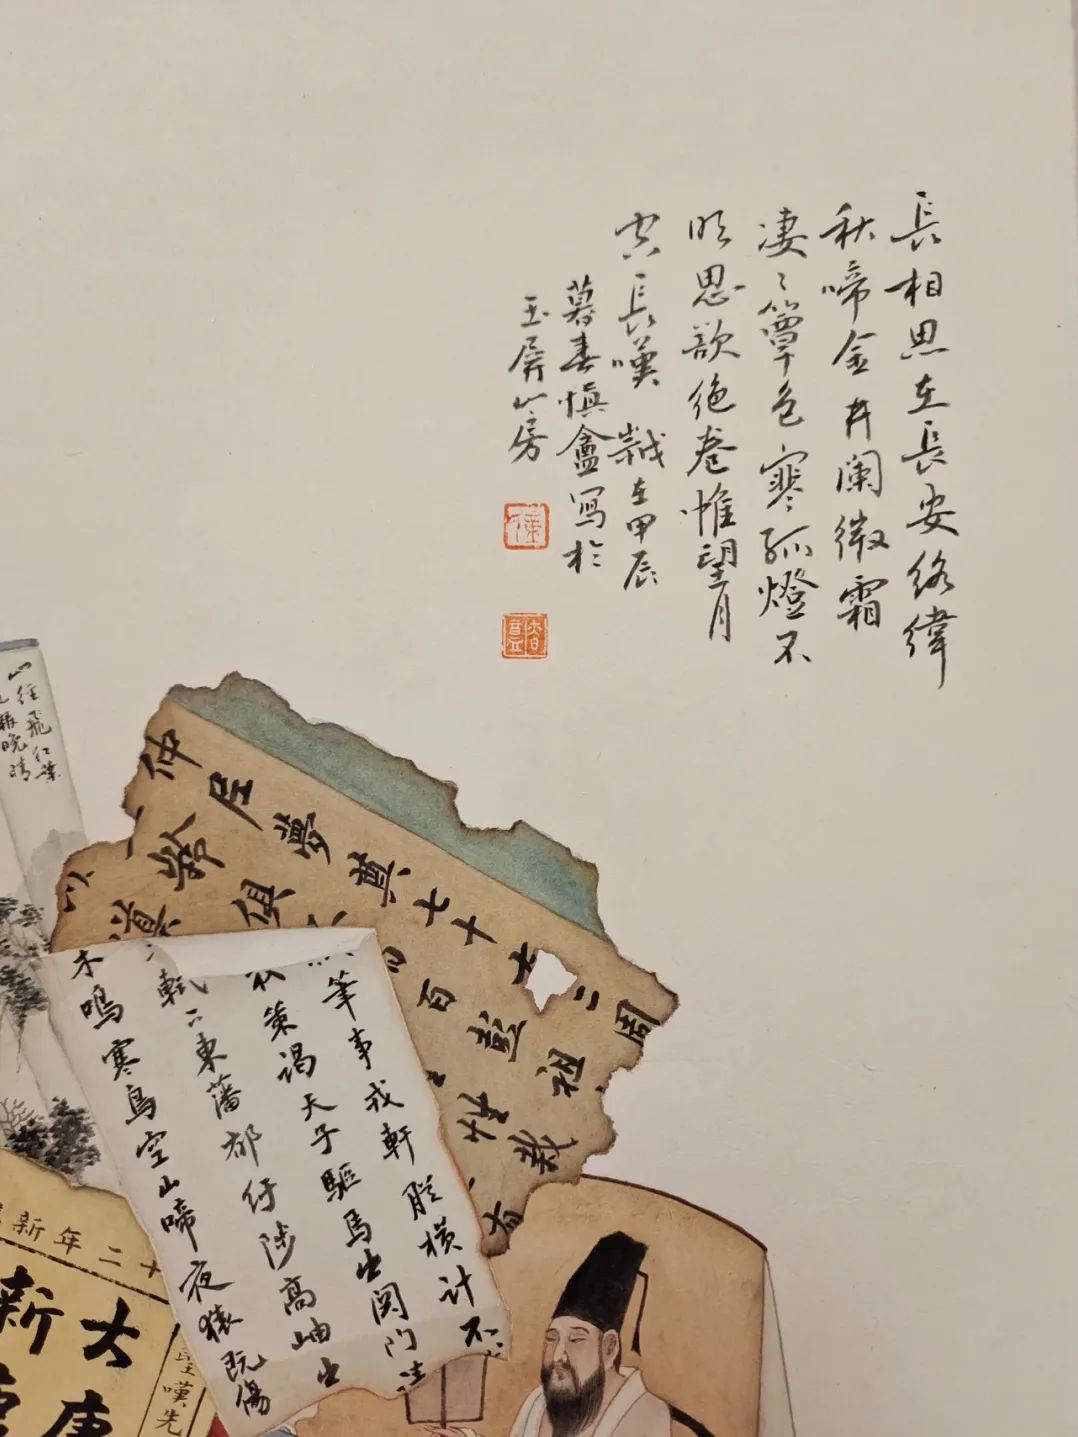 長相思在長安絡緯
秋啼金井闌微霜
凄〻簟色寒孤燈不
明思欲绝卷帷望月
空長嘆 歲在甲辰
暮春慎盦写於
玉屏山房
山径飛红葉
晚晴
仲尼夢奠七十
二周
百 彭祖
俱
真
性 裁
有
筆事戎軒 縱横計不
策謁天子驅馬出関門
軾下東藩郁紆陟高岫出
木鳴寒鳥空山啼夜猿既傷
十二年新
大唐
新
聖嘆先